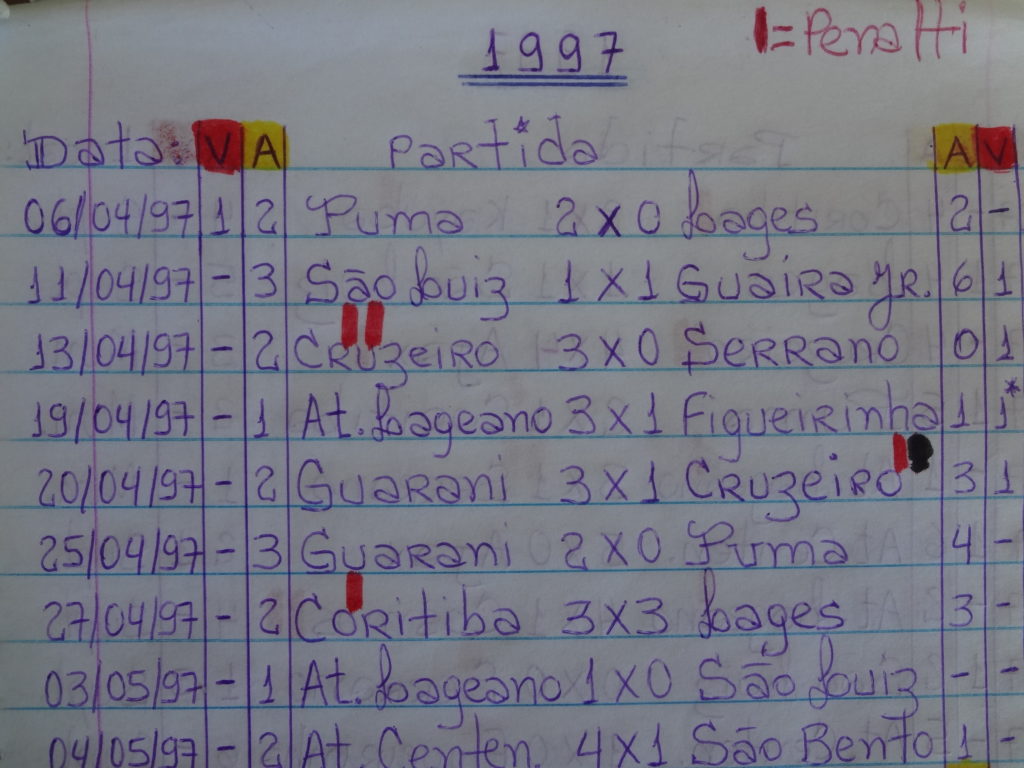 1997
= Penalti
Data V A Partida A V
06/04/97 1 2 Puma 2 X 0 Lages 2 -
11/04/97 - 3 São Luiz 1 X 1 Guaira Jr. 6 1
13/04/97 - 2 Cruzeiro 3 X 0 Serrano 0 1
19/04/97 - 1 At. Lageano 3 X 1 Figueirinha 1 1*
20/04/97 - 2 Guarani 3 X 1 Cruzeiro 3 1
25/04/97 - 3 Guarani 2 X 0 Puma 4 -
27/04/97 - 2 Coritiba 3 X 3 Lages 3 -
03/05/97 - 1 At. Lageano 1 X 0 São Luiz - -
04/05/97 - 2 At. Centen. 4 X 1 São Bento 1 -